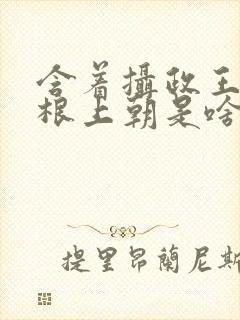 含着攝政王
根上朝是啥
提里昂蘭尼斯